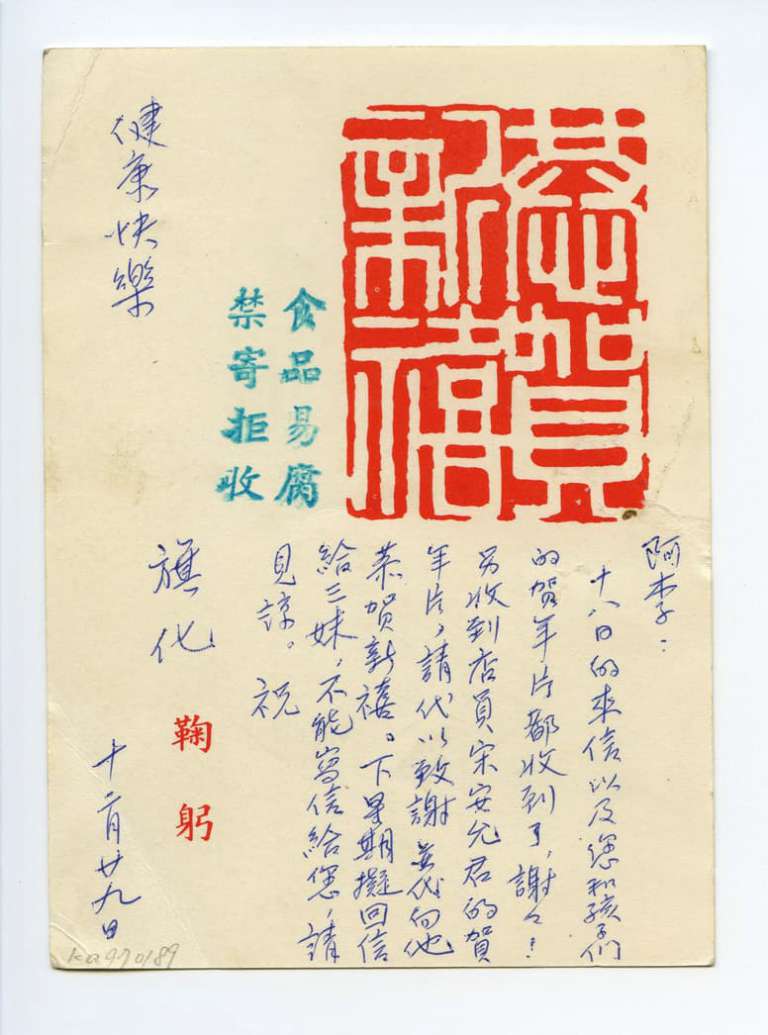 恭賀
新禧
食品易腐
禁寄拒收
阿李:
十八日的來信以及您和孩子們
的賀年片都收到了,謝々!
另收到店員宋安允君的賀
年片,請代以致謝並代向他
恭賀新禧。下星期擬回信
給三妹,不能寫信給您,請
見諒。祝
健康快樂
旗化
鞠躬
十二月廿九日
ka970189